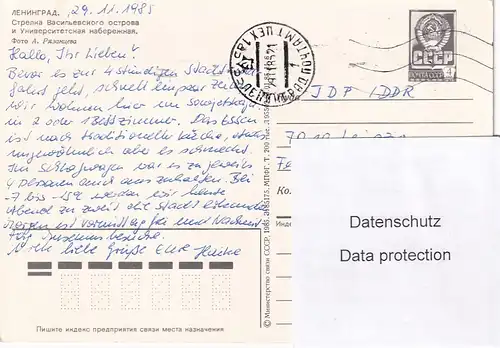 ЛЕНИНГРАД. 29.11.1985
Стрелка Васильевского острова
и Университетская набережная.
Фото А. Рязанцева
Hallo, Ihr Lieben!
Bevor es zur 4 stündigen Stadt
fahrt geht, schnell ein paar Zeilen
Wir wohnen hier im
in 2 oder 1 Bettzimmer. Das Essen
ist nach traditioneller Küche, etwas
ungewöhnlich aber es schmeckt.
Im Schlafwagen war es zu jeweils
4 Personen auszuhalten. Bei
-7 bis -15°C werden wir heute
Abend zu zweit die Stadt erkunden
Morgen ist Vormittag frei und Nachmi
für Museumsbesuche.
liebe Grüße Eure Heike
Пишите индекс предприятия связи места назначения
© Министерство связи СССР. 1985.
СССР
ПОЧТА
4
ЛЕНИНГРАД
ПОЧТАМТ
JDP / DDR
7010 Leipzig
Ко
Инде
Datenschutz
Data protection